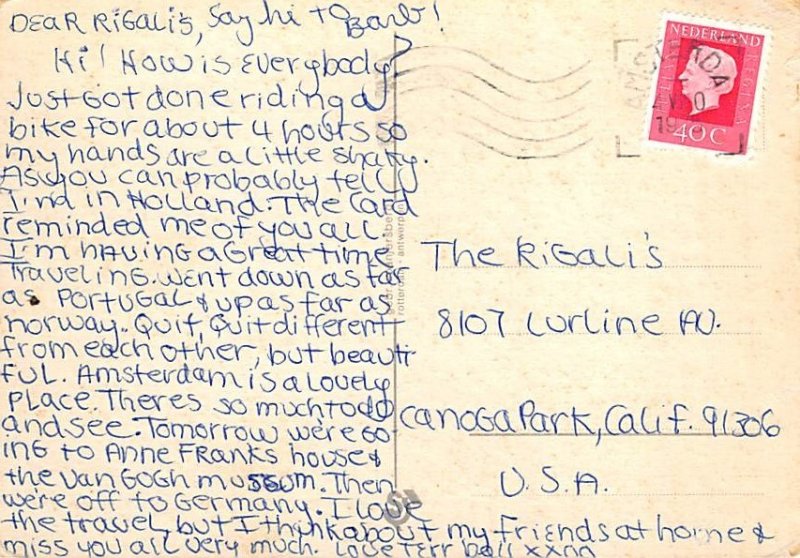 DEAR RIGALI'S, Say hi to Barb!
Hi! How is Everybody?
Just Got done riding a
bike for about 4 hours so
my hands are a little shaky.
As you can probably tell
I'm in Holland. The Card
reminded me of you all.
I'm HAVING a Great time
Traveling. went down as far
as PORTUGAL & up as far as
norway. Quit, Quit different
from each other, but beauti
FUL. Amsterdam is a lovely
PLACE. Theres so much to do
and see. Tomorrow were Go
ING to ANNE FRANKS house &
the van GOGH museum. Then
we're off to Germany. I love
the travel, but I think about my friends at home &
miss you all very much. Love Terr
xxoo
NEDERLAND
AMSTERDA
40C
The RiGali's
8107 Lurline AV.
CanoGa Park, Calif. 91306
U.S.A.
rotterdam - antwerpen